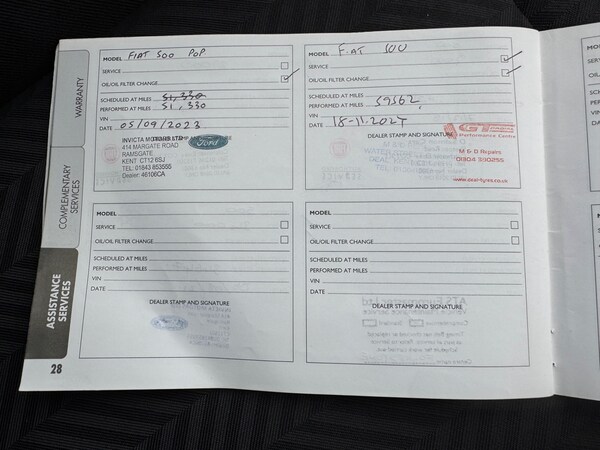 WARRANTY
COMPLEMENTARY
SERVICES
ASSISTANCE
SERVICES
28
MODEL FIAT 500 POP
SERVICE
OIL/OIL FILTER CHANGE
SCHEDULED AT MILES 51,330
PERFORMED AT MILES 51,330
VIN
DATE 05/09/2023
DEALER STAMP AND SIGNATURE
INVICTA MOTORS LTD
414 MARGATE ROAD
RAMSGATE
KENT CT12 6SJ
TEL: 01843 853555
Dealer: 46106CA
Ford
MODEL FIAT 500
SERVICE
OIL/OIL FILTER CHANGE
SCHEDULED AT MILES
PERFORMED AT MILES 59562
VIN
DATE 18-11-2024
DEALER STAMP AND SIGNATURE
Performance Centre
M & O Repairs
01304 390255
MODEL
SERVICE
OIL/OIL FILTER CHANGE
SCHEDULED AT MILES
PERFORMED AT MILES
VIN
DATE
DEALER STAMP AND SIGNATURE
MODEL
SERVICE
OIL/OIL FILTER CHANGE
SCHEDULED AT MILES
PERFORMED AT MILES
VIN
DATE
DEALER STAMP AND SIGNATURE